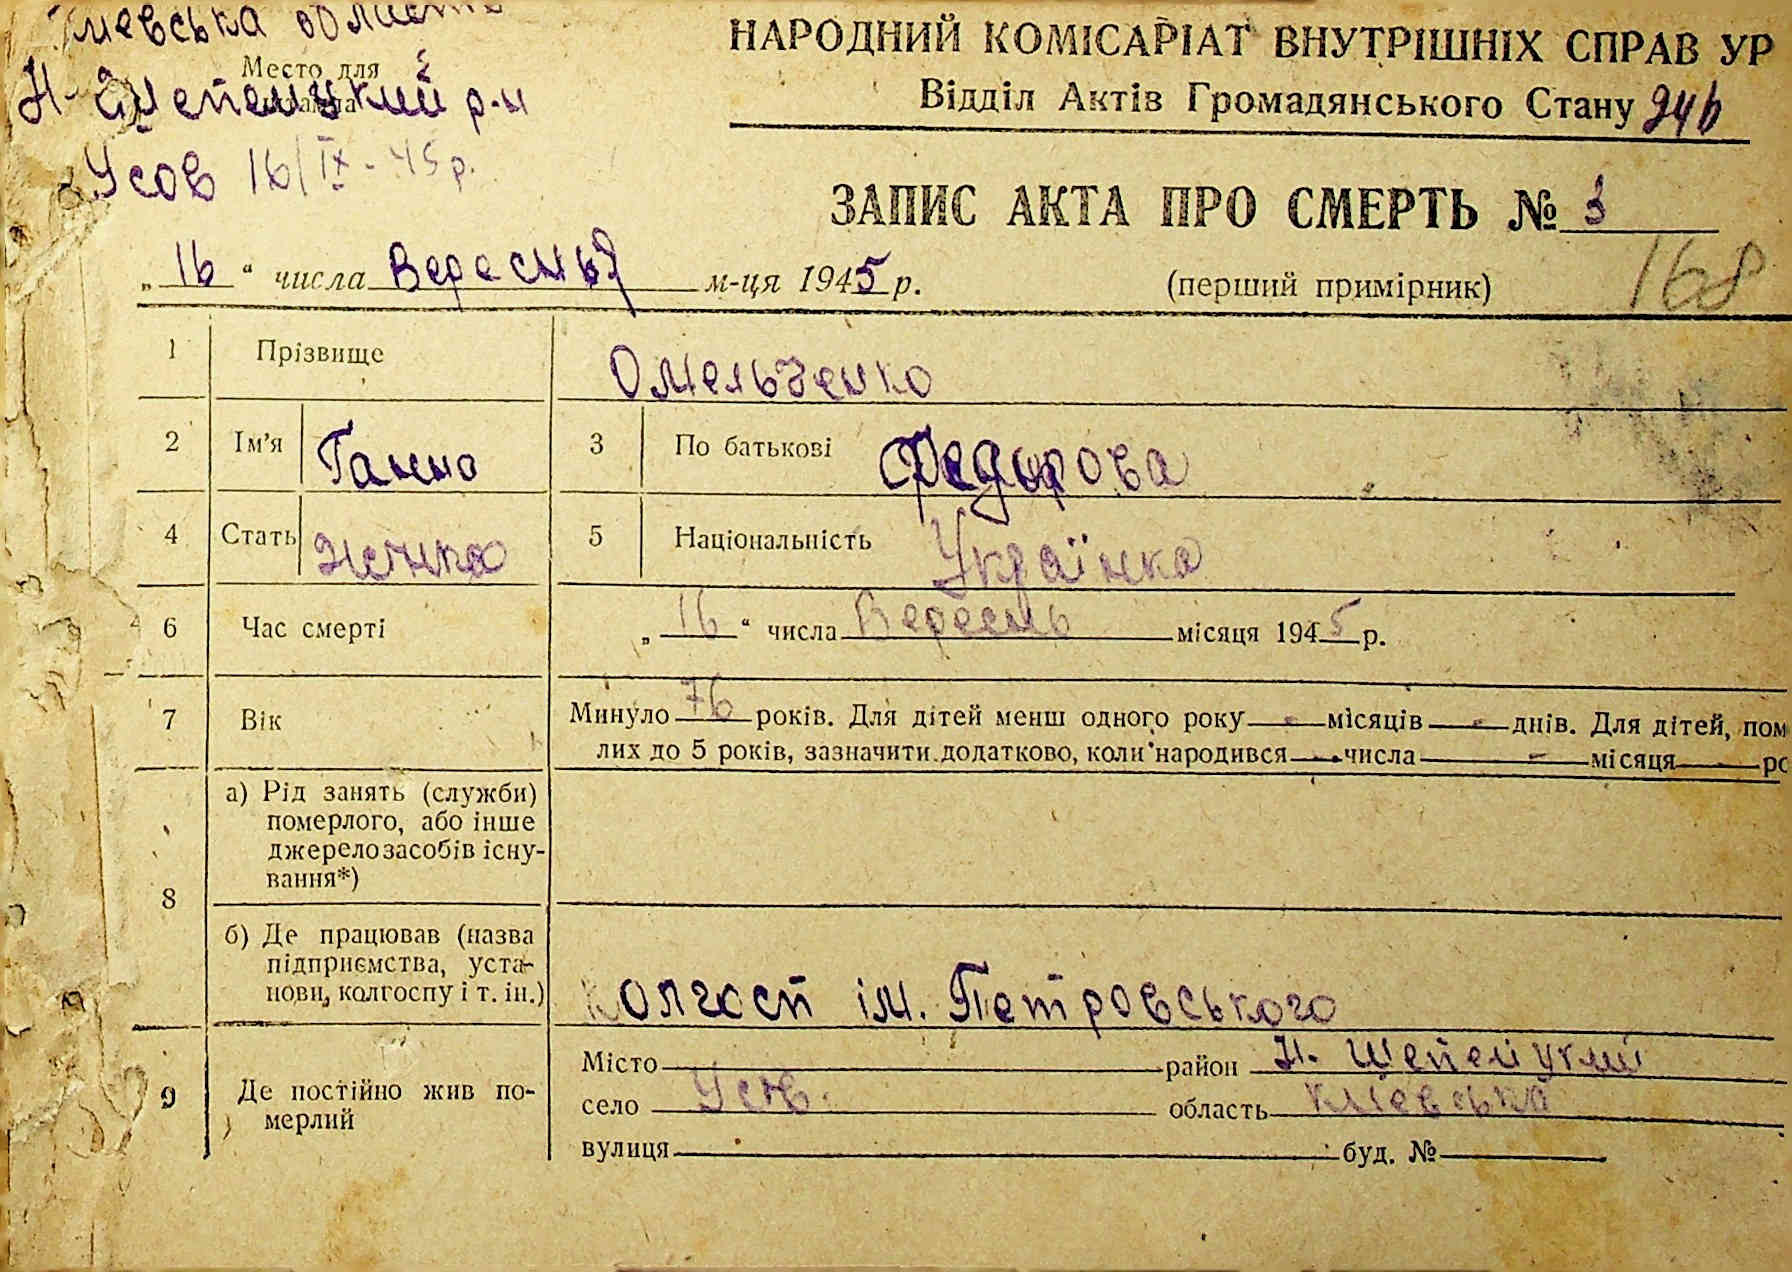 Киевська область
Место для
штампа
Н-Шепелицкий р-н
Усов 16/IX-45р.
НАРОДНИЙ КОМІСАРІАТ ВНУТРІШНІХ СПРАВ УР
Відділ Актів Громадянського Стану 246
ЗАПИС АКТА ПРО СМЕРТЬ № 3
168
„16“ числа Вереснья м-ця 1945 р. (перший примірник)
1 Прізвище Омельченко
2 Ім'я Ганна 3 По батькові Федорова
4 Стать женка 5 Національність Українка
6 Час смерті „16“ числа Вереснь місяця 1945 р.
7 Вік Минуло 76 років. Для дітей менш одного року - місяців - днів. Для дітей, пом
лих до 5 років, зазначити додатково, коли народився - числа - місяця ро
8 а) Рід занять (служби)
померлого, або інше
джерело засобів існу-
вання*)
б) Де працював (назва
підприємства, уста-
нови, колгоспу і т. ін.) колгосп ім. Петровського
9 Де постійно жив по-
мерлий
Місто район Н. Шепелицкий
село Усов. область Киевська
вулиця буд. №